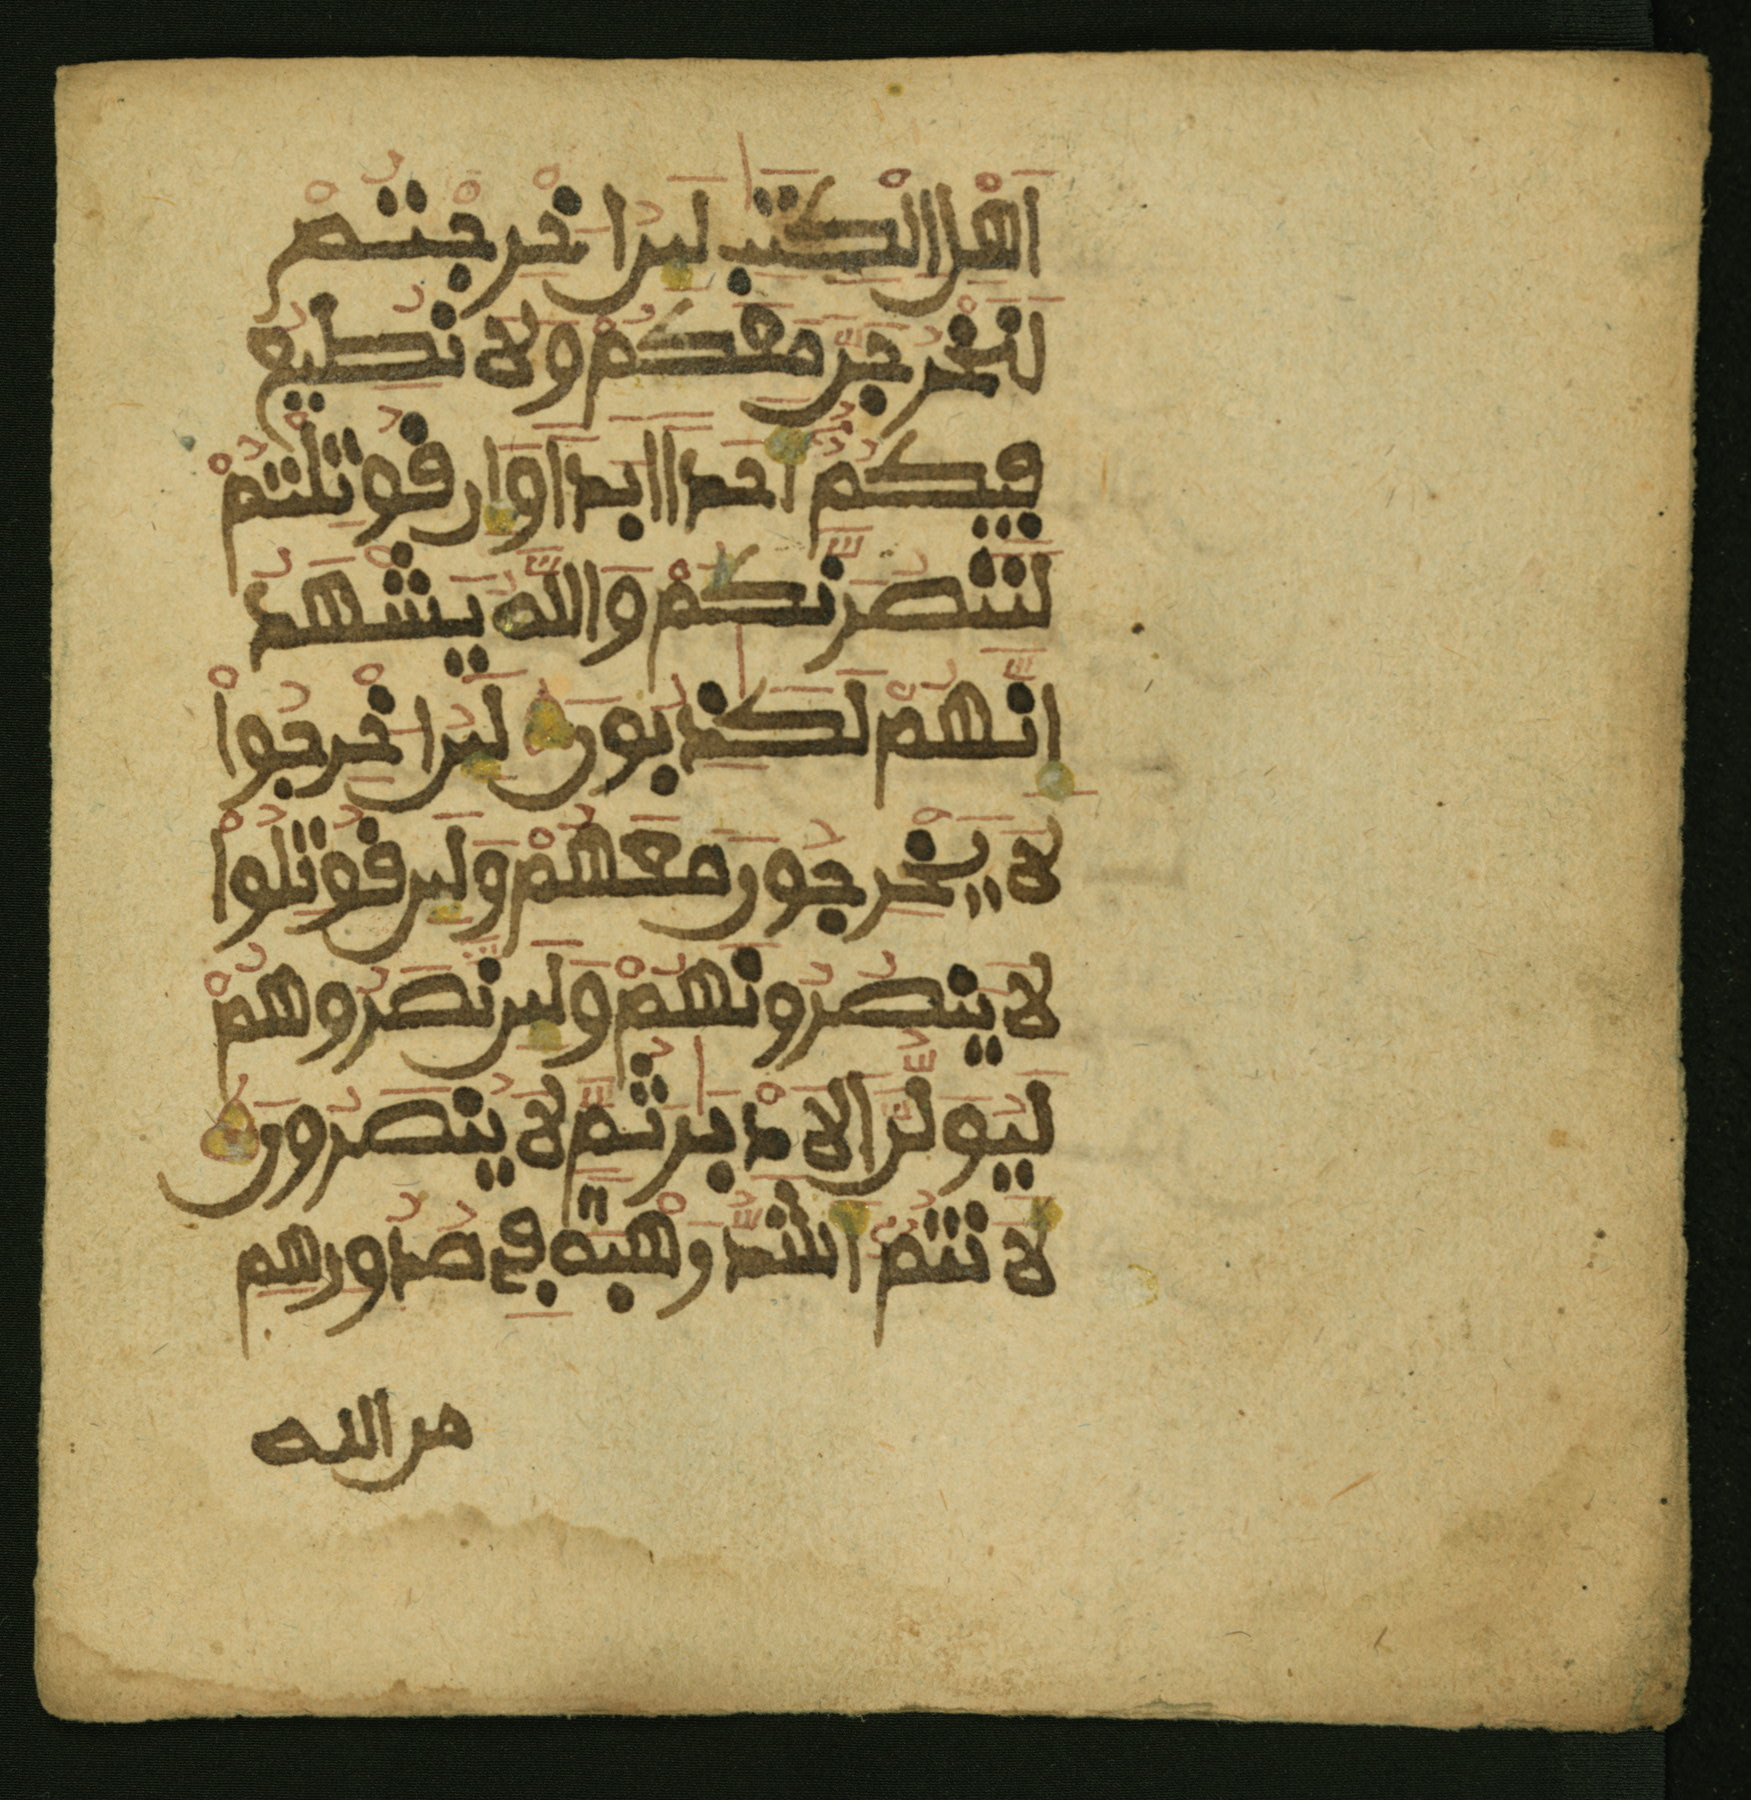 اَهْلِ اِ۬لْكِتَٰبِ لَئِنُ ا۟خْرِجْتُمْ
لَنَخْرُجَنَّ مَعَكُمْ وَلَا نُطِيعُ
فِيكُمُۥٓ أَحَداً اَبَداً وَإِن قُوتِلْتُمْ
لَنَنصُرَنَّكُمْ وَاللَّهُ يَشْهَدُ
إِنَّهُمْ لَكَٰذِبُونَ لَئِنُ ا۟خْرِجُواْ
لَا يَخْرُجُونَ مَعَهُمْ وَلَئِن قُوتِلُواْ
لَا يَنصُرُونَهُمْ وَلَئِن نَّصَرُوهُمْ
لَيُوَلُّنَّ اَلَادْبَٰرَ ثُمَّ لَا يُنصَرُونَ
لَأَنتُمُۥٓ أَشَدُّ رَهْبَةً فِي صُدُورِهِم
من الله